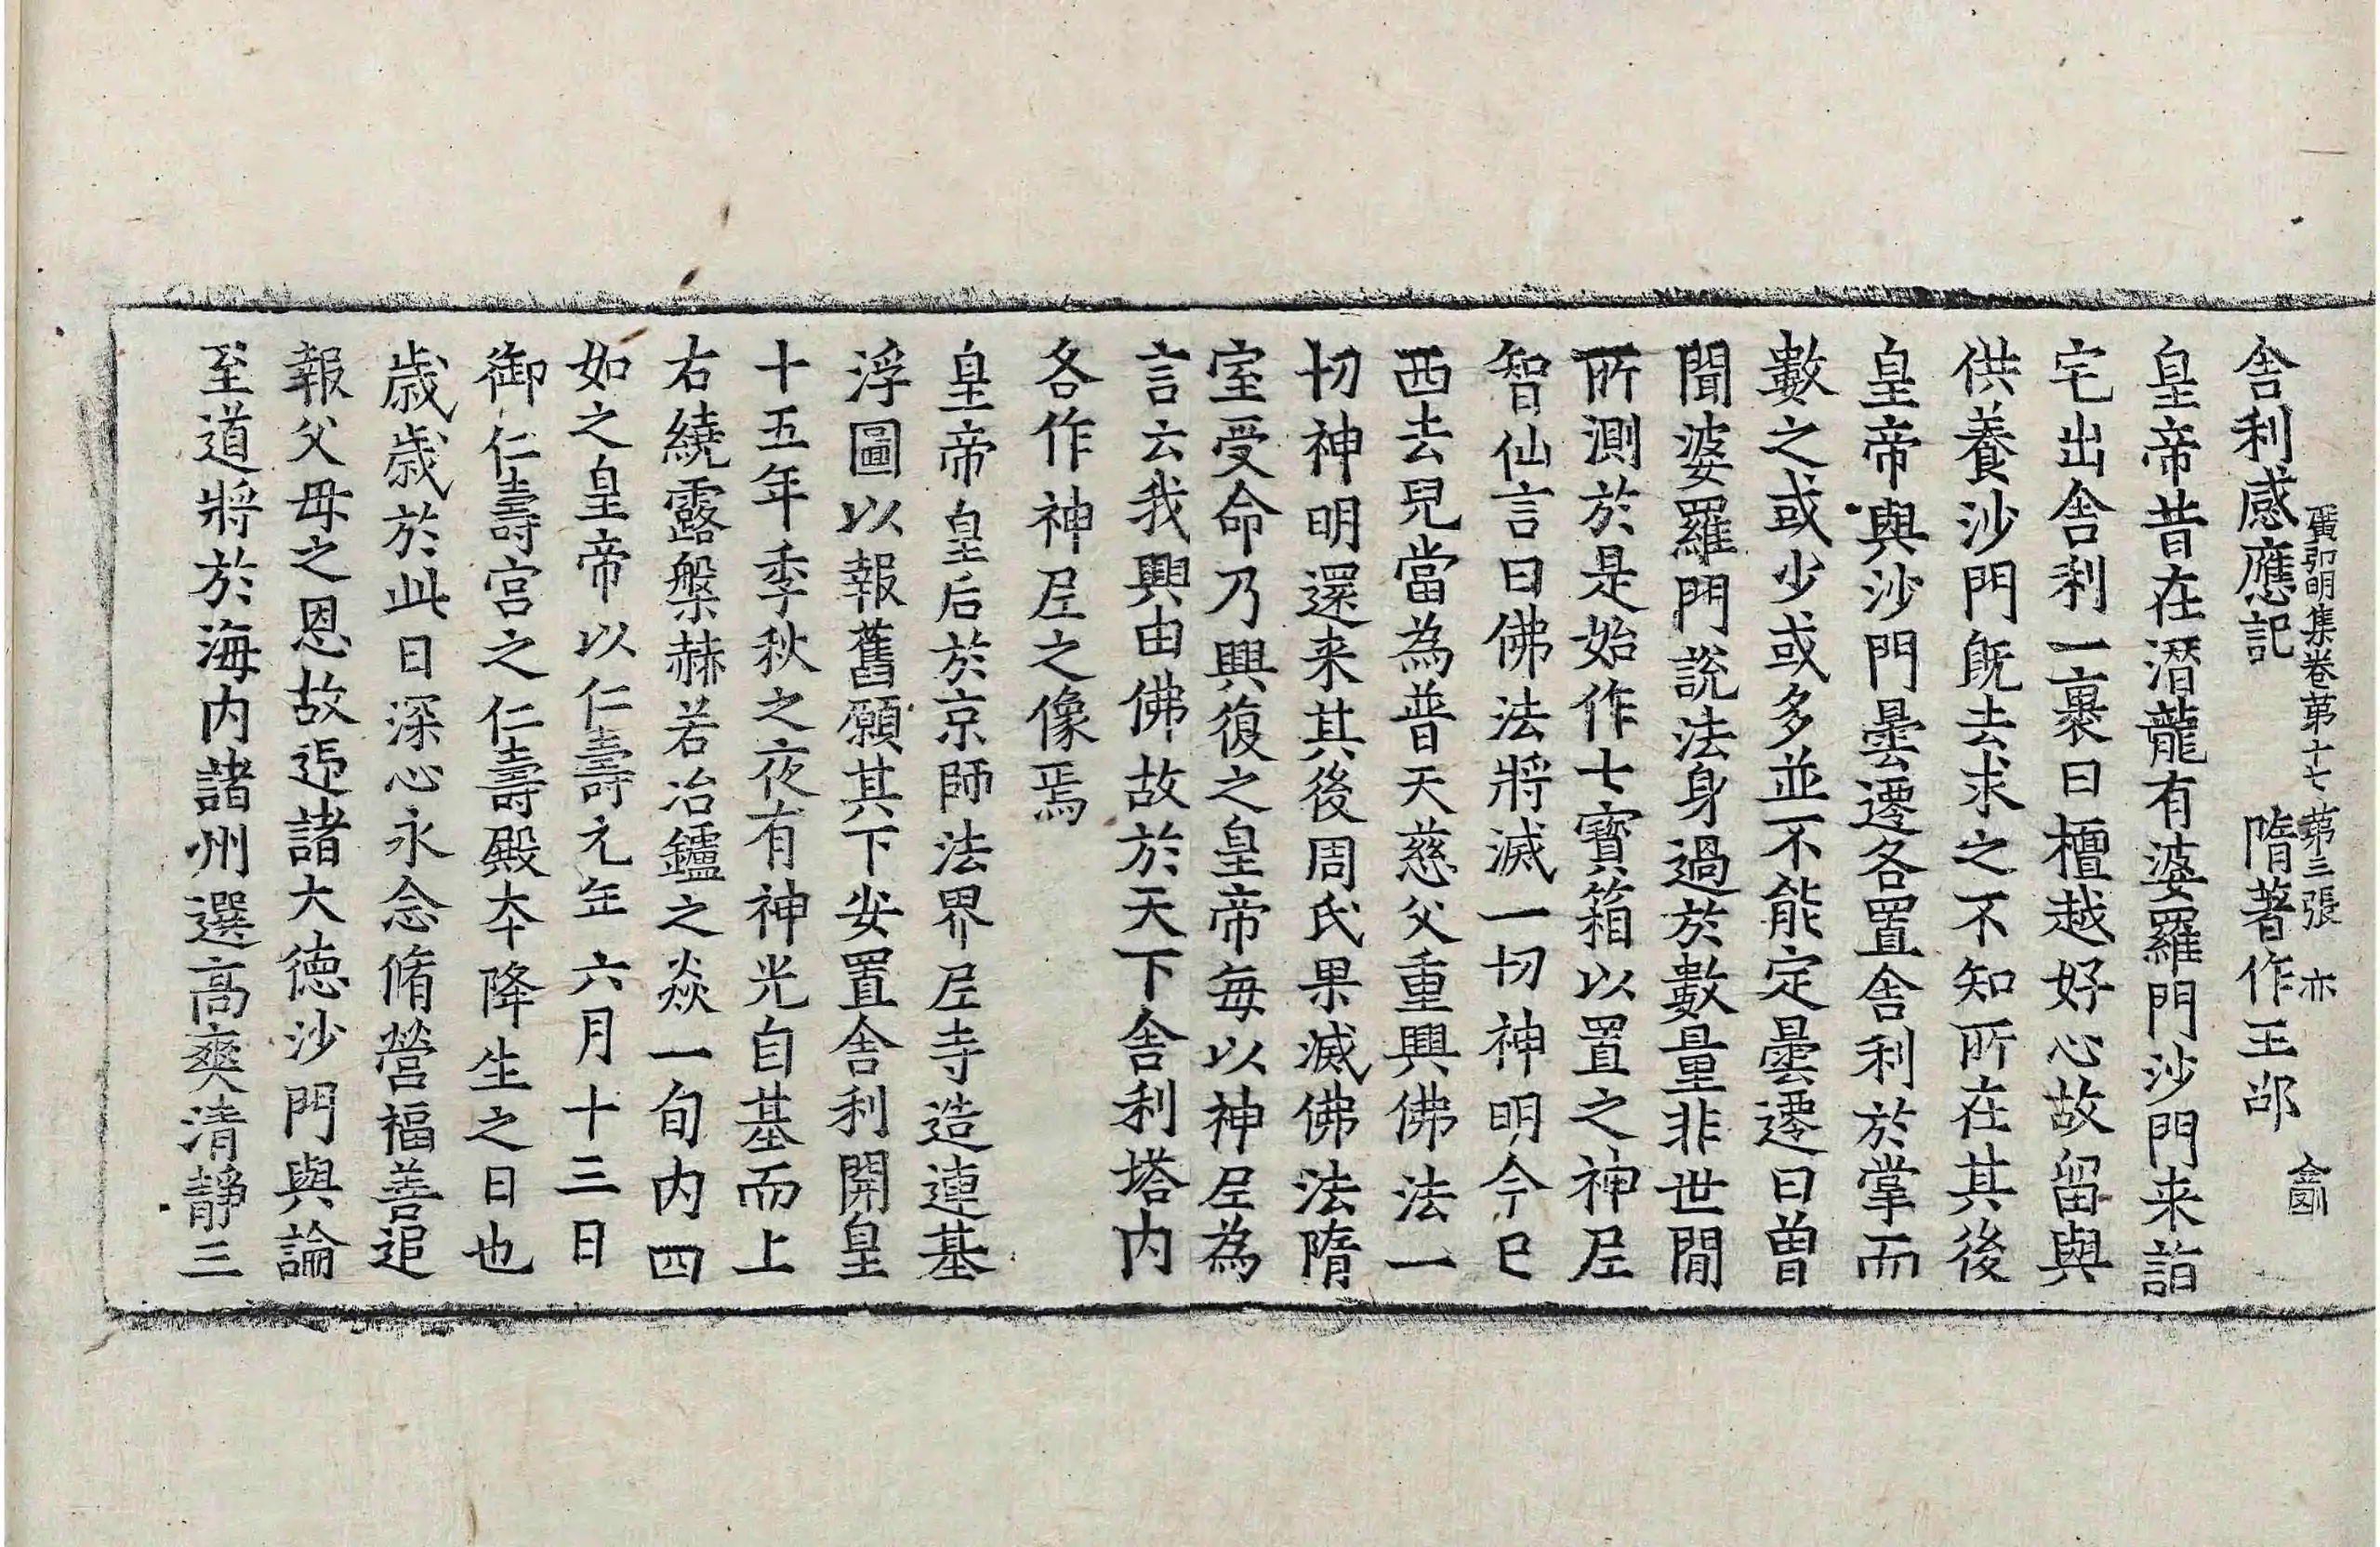 舎利感應記　隋著作王邵
廣弘明集卷第十七　第三張　亦
皇帝昔在潛龍有婆羅門沙門来詣
宅出舎利一裹曰檀越好心故留與
供養沙門旣去求之不知所在其後
皇帝與沙門曇遷各置舎利於掌而
數之或少或多並不能定曇遷曰曽
聞婆羅門說法身過於數量非世間
所測於是始作七寶箱以置之神尼
智仙言曰佛法將滅一切神明今已
西去兒當為普天慈父重興佛法一
切神明還来其後周氏果滅佛法隋
室受命乃興復之皇帝每以神尼為
言云我興由佛故於天下舎利塔内
各作神尼之像焉
皇帝皇后於京師法界尼寺造連基
浮圖以報舊願其下安置舎利開皇
十五年季秋之夜有神光自基而上
右繞露槃赫若冶鑪之焱一旬内四
如之皇帝以仁壽元年六月十三日
御仁壽宮之仁壽殿本降生之日也
歲歲於此日深心永念脩營福善追
報父母之恩故迎諸大德沙門與論
至道將於海内諸州選高爽清靜三